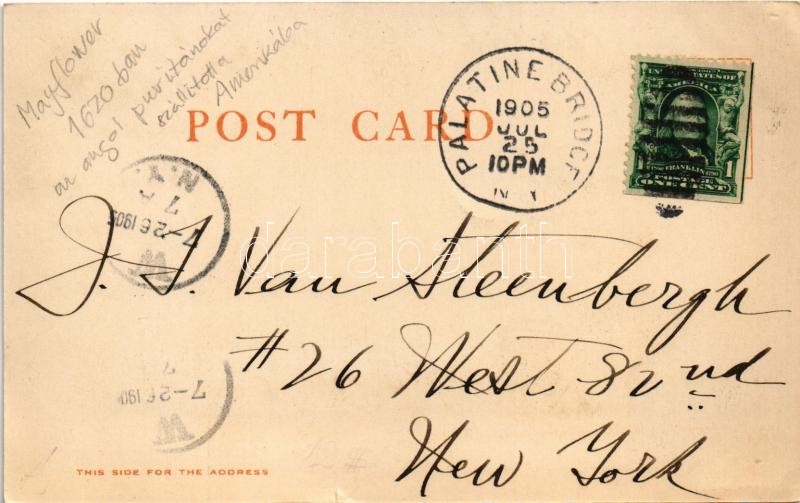 Mayflower
1620 ban
an angol puritánokat
szállította
Amerikába
POST CARD
PALATINE BRIDGE
1905
JUL
25
10PM
N Y
UNITED STATES OF
AMERICA
FRANKLIN
POSTAGE
1 ONE CENT 1
N.Y.
7 P
7-26 1905
W
darabanth
J. S. Van Steenbergh
#26 West 82nd
New York
7
7-26 190
W
THIS SIDE FOR THE ADDRESS